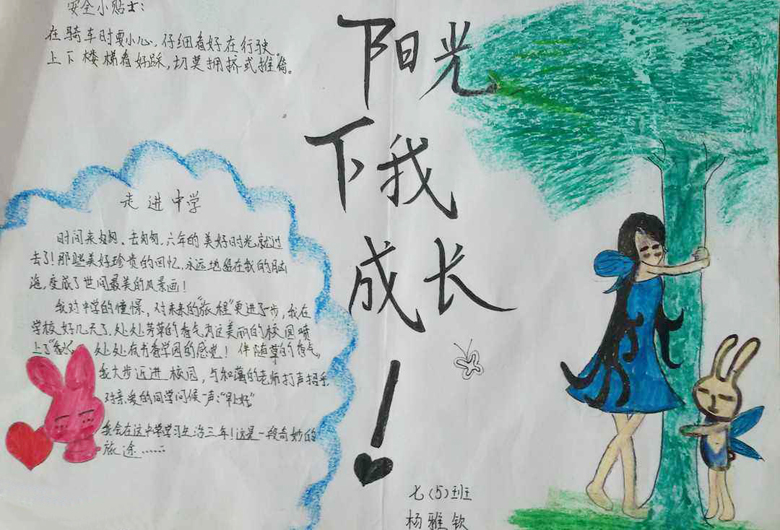 安全小贴士:
在骑车时要小心,仔细看好在行驶。
上下楼梯看好踩,切莫拥挤或推倚。
阳光
下我
成长
!
走进中学
时间来匆匆,去匆匆,六年的美好时光就过
去了!那些美好珍贵的回忆,永远地留在我的脑
海,变成了世间最美的风景画!
我对中学的憧憬,对未来的"旅程"更进了步,我在
学校好几天了,处处芳草的香气为这美丽的校园喷
上了"香水" 处处在书香学园的感觉!伴随草的香气。
我大步迈进校园,与和蔼的老师打声招呼
对亲爱的同学问候一声:"早上好"
我会在这中学学习生活三年!这是一段奇妙的
旅途……
七(5)班
杨雅钦